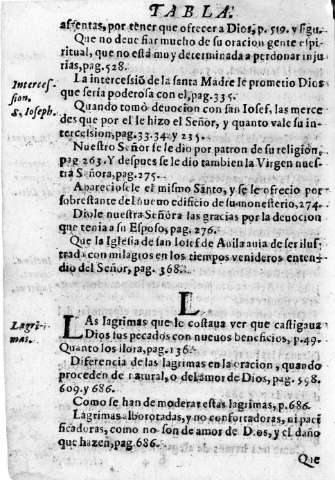 TABLA.
afrentas, por tener que ofrecer a Dios, p. 519. y sigu.
Que no deue fiar mucho de su oracion gente espi-
ritual, que no està muy determinada a perdonar inju
rias, pag. 528.
Interces-
sion.
La intercessiõ de la santa Madre le prometio Dios
que seria poderosa con el, pag. 335.
S. Ioseph.
Quando tomò deuocion con san Iosef, las merce
des que por el le hizo el Señor, y quanto vale su in-
tercession, pag. 33. 34. y 235.
Nuestro Señor se le dio por patron de su religion,
pag 263. Y despues se le dio tambien la Virgen nues-
tra Señora, pag. 275.
Apareciosele el mismo Santo, y se le ofrecio por
sobrestante del nueuo edificio de su monesterio, 274.
Diole nuestra Señora las gracias por la deuocion
que tenia a su Esposo, pag. 276.
Que la Iglesia de san Iosef de Auila auia de ser ilus
trada con milagros en los tiempos venideros enten-
dio del Señor, pag. 368.
L
Lagri-
mas.
LAs lagrimas que le costaua ver que castigaua
Dios sus pecados con nueuos beneficios, p. 49.
Quanto los llora, pag. 136.
Diferencia de las lagrimas en la oracion, quando
proceden de natural, o del amor de Dios, pag. 598.
609. y 686.
Como se han de moderar estas lagrimas, p. 686.
Lagrimas alborotadas, y no confortadoras, ni paci
ficadoras, como no son de amor de Dios, y el daño
que hazen, pag. 686.
Que